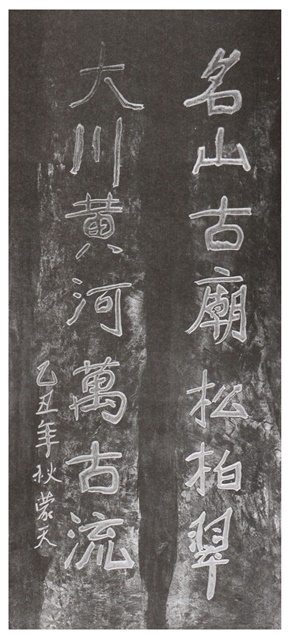 名山古廟松柏翠
大川黄河萬古流
乙丑年秋蒙天